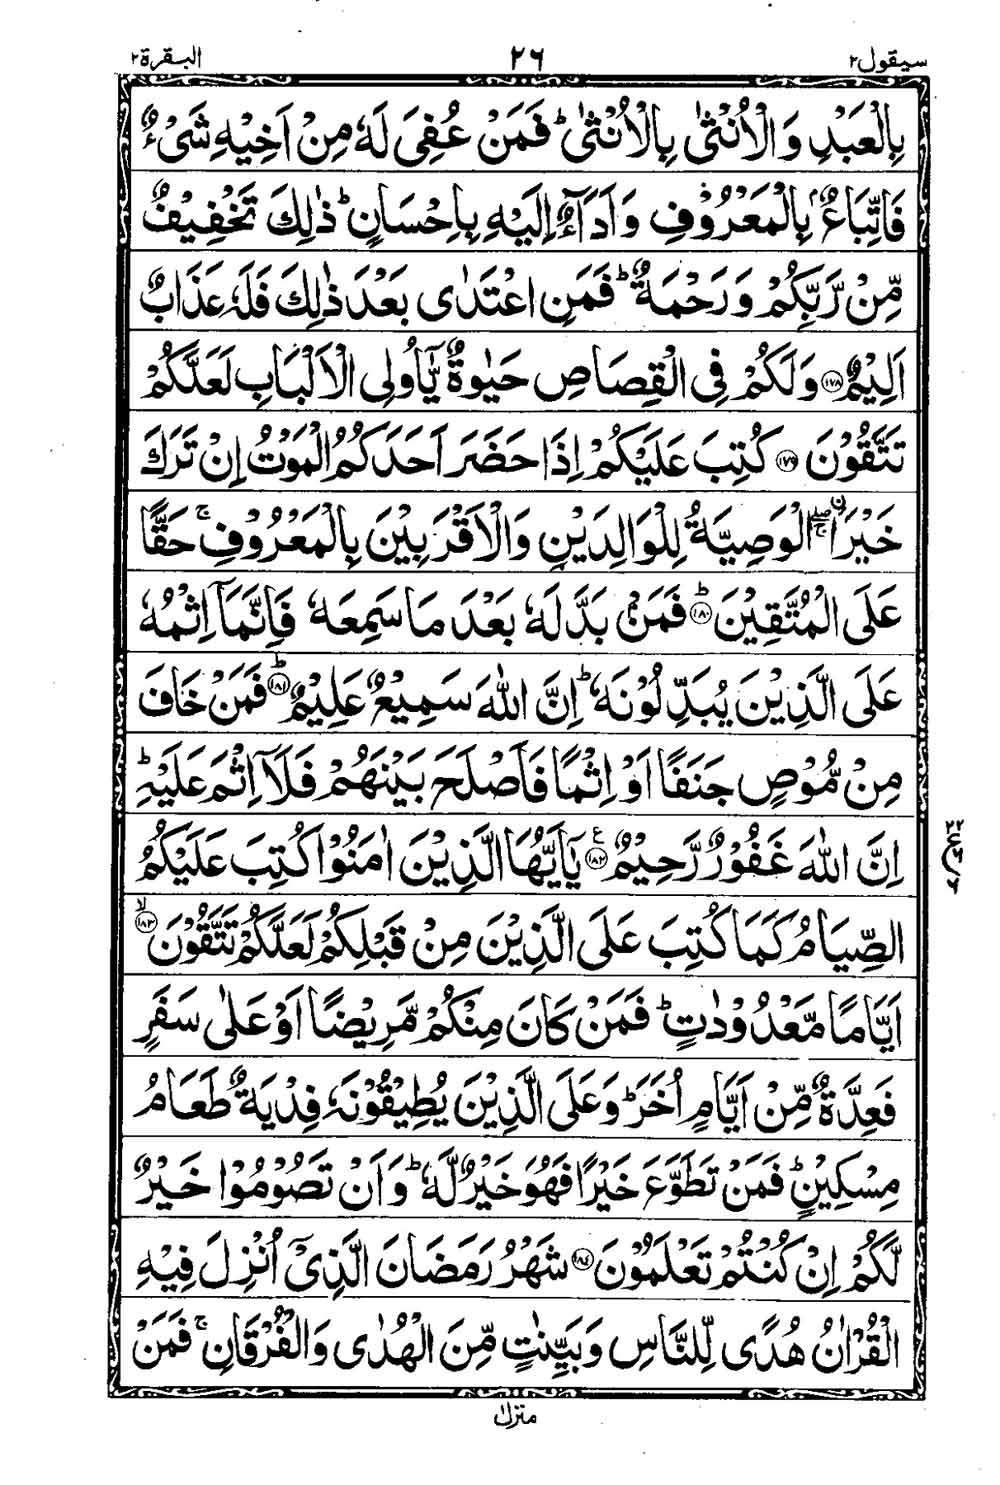 سيقول٢ ٢٦ البقرة٢
بِالْعَبْدِ وَالْاُنْثٰى بِالْاُنْثٰىؕ فَمَنْ عُفِىَ لَهٗ مِنْ اَخِيْهِ شَىْءٌ
فَاتِّبَاعٌۢ بِالْمَعْرُوْفِ وَاَدَآءٌ اِلَيْهِ بِاِحْسَانٍؕ ذٰلِكَ تَخْفِيْفٌ
مِّنْ رَّبِّكُمْ وَرَحْمَةٌؕ فَمَنِ اعْتَدٰى بَعْدَ ذٰلِكَ فَلَهٗ عَذَابٌ
اَلِيْمٌ ﴿١٧٨﴾ وَلَكُمْ فِى الْقِصَاصِ حَيٰوةٌ يّٰٓاُولِى الْاَلْبَابِ لَعَلَّكُمْ
تَتَّقُوْنَ ﴿١٧٩﴾ كُتِبَ عَلَيْكُمْ اِذَا حَضَرَ اَحَدَكُمُ الْمَوْتُ اِنْ تَرَكَ
خَيْرَا ۖۚ ن الْوَصِيَّةُ لِلْوَالِدَيْنِ وَالْاَقْرَبِيْنَ بِالْمَعْرُوْفِۚ حَقًّا
عَلَى الْمُتَّقِيْنَؕ ﴿١٨٠﴾ فَمَنْۢ بَدَّلَهٗ بَعْدَ مَا سَمِعَهٗ فَاِنَّمَآ اِثْمُهٗ
عَلَى الَّذِيْنَ يُبَدِّلُوْنَهٗؕ اِنَّ اللّٰهَ سَمِيْعٌ عَلِيْمٌؕ ﴿١٨١﴾ فَمَنْ خَافَ
مِنْ مُّوْصٍ جَنَفًا اَوْ اِثْمًا فَاَصْلَحَ بَيْنَهُمْ فَلَآ اِثْمَ عَلَيْهِؕ
اِنَّ اللّٰهَ غَفُوْرٌ رَّحِيْمٌ ﴿١٨٢﴾ ع يٰٓاَيُّهَا الَّذِيْنَ اٰمَنُوْا كُتِبَ عَلَيْكُمُ
الصِّيَامُ كَمَا كُتِبَ عَلَى الَّذِيْنَ مِنْ قَبْلِكُمْ لَعَلَّكُمْ تَتَّقُوْنَۙ ﴿١٨٣﴾
اَيَّامًا مَّعْدُوْدٰتٍؕ فَمَنْ كَانَ مِنْكُمْ مَّرِيْضًا اَوْ عَلٰى سَفَرٍ
فَعِدَّةٌ مِّنْ اَيَّامٍ اُخَرَؕ وَعَلَى الَّذِيْنَ يُطِيْقُوْنَهٗ فِدْيَةٌ طَعَامُ
مِسْكِيْنٍؕ فَمَنْ تَطَوَّعَ خَيْرًا فَهُوَ خَيْرٌ لَّهٗؕ وَاَنْ تَصُوْمُوْا خَيْرٌ
لَّكُمْ اِنْ كُنْتُمْ تَعْلَمُوْنَ ﴿١٨٤﴾ شَهْرُ رَمَضَانَ الَّذِىْٓ اُنْزِلَ فِيْهِ
الْقُرْاٰنُ هُدًى لِّلنَّاسِ وَبَيِّنٰتٍ مِّنَ الْهُدٰى وَالْفُرْقَانِۚ فَمَنْ
منزل١